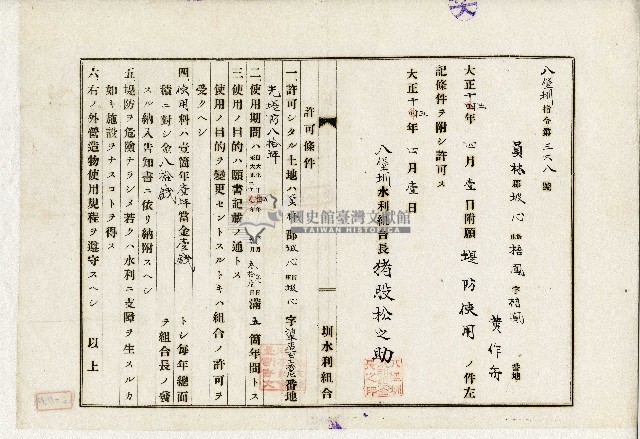 八堡圳指令第三六八號
員林郡坡心庄梧鳳字梧鳳 番地
黄作舟
大正十四年四月壹日附願堤防使用ノ件左
記條件ヲ附シ許可ス
大正十四年四月壹日
八堡圳水利組合長 猪股松之助
圳水利組合
許可條件
一、許可シタル土地ハ員林郡坡心庄坡心字 番地
先堤防八拾坪
二、使用期間ハ 滿五箇年間トス
三、使用ノ目的ハ願書記載ノ通トス
使用ノ目的ヲ變更セントスルトキハ組合ノ許可ヲ
受クヘシ
四、使用料ハ壹箇年壹坪當金壹錢トシ毎年總面
積ニ對シ金八拾錢ヲ組合長ノ發
スル納入告知書ニ依リ納附スヘシ
五、堤防ヲ危險ナラシメ若クハ水利ニ支障ヲ生スルカ
如キ施設ヲナスコトヲ得ス
六、右ノ外營造物使用規程ヲ遵守スヘシ
以上
國史館臺灣文獻館
TAIWAN HISTORICA